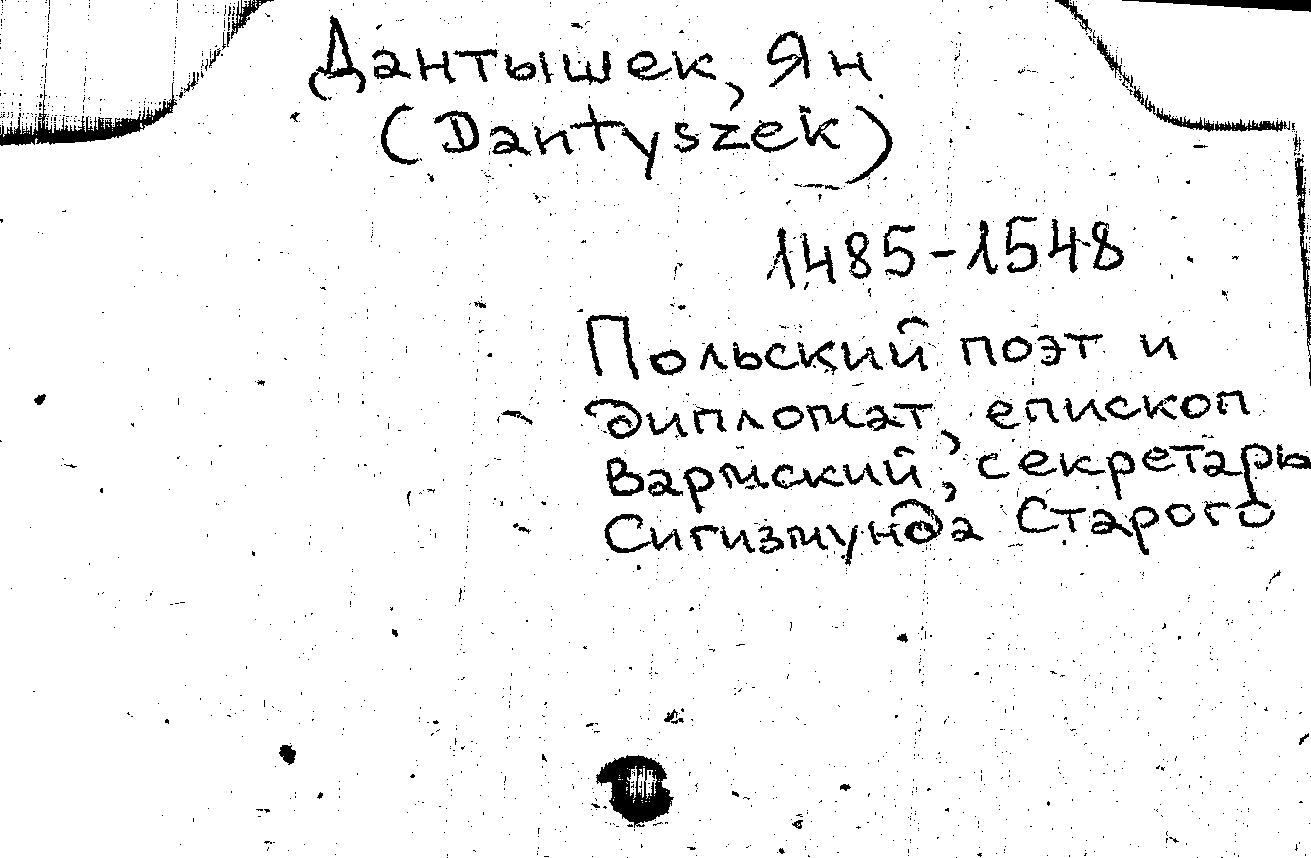 Дантышек, Ян
(Dantyszek)
1485-1548
Польский поэт и
дипломат, епископ
Вармский, секретарь
Сигизмунда Старого